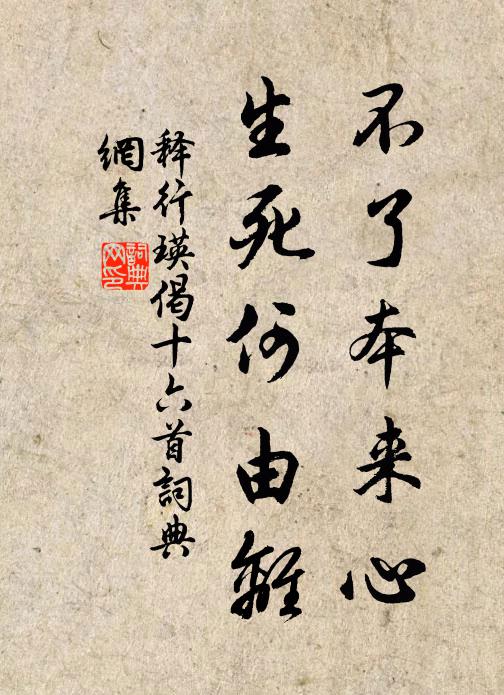 不了本来心
生死何由離
释行瑛偈十六首詞典
網集
詞典
网印